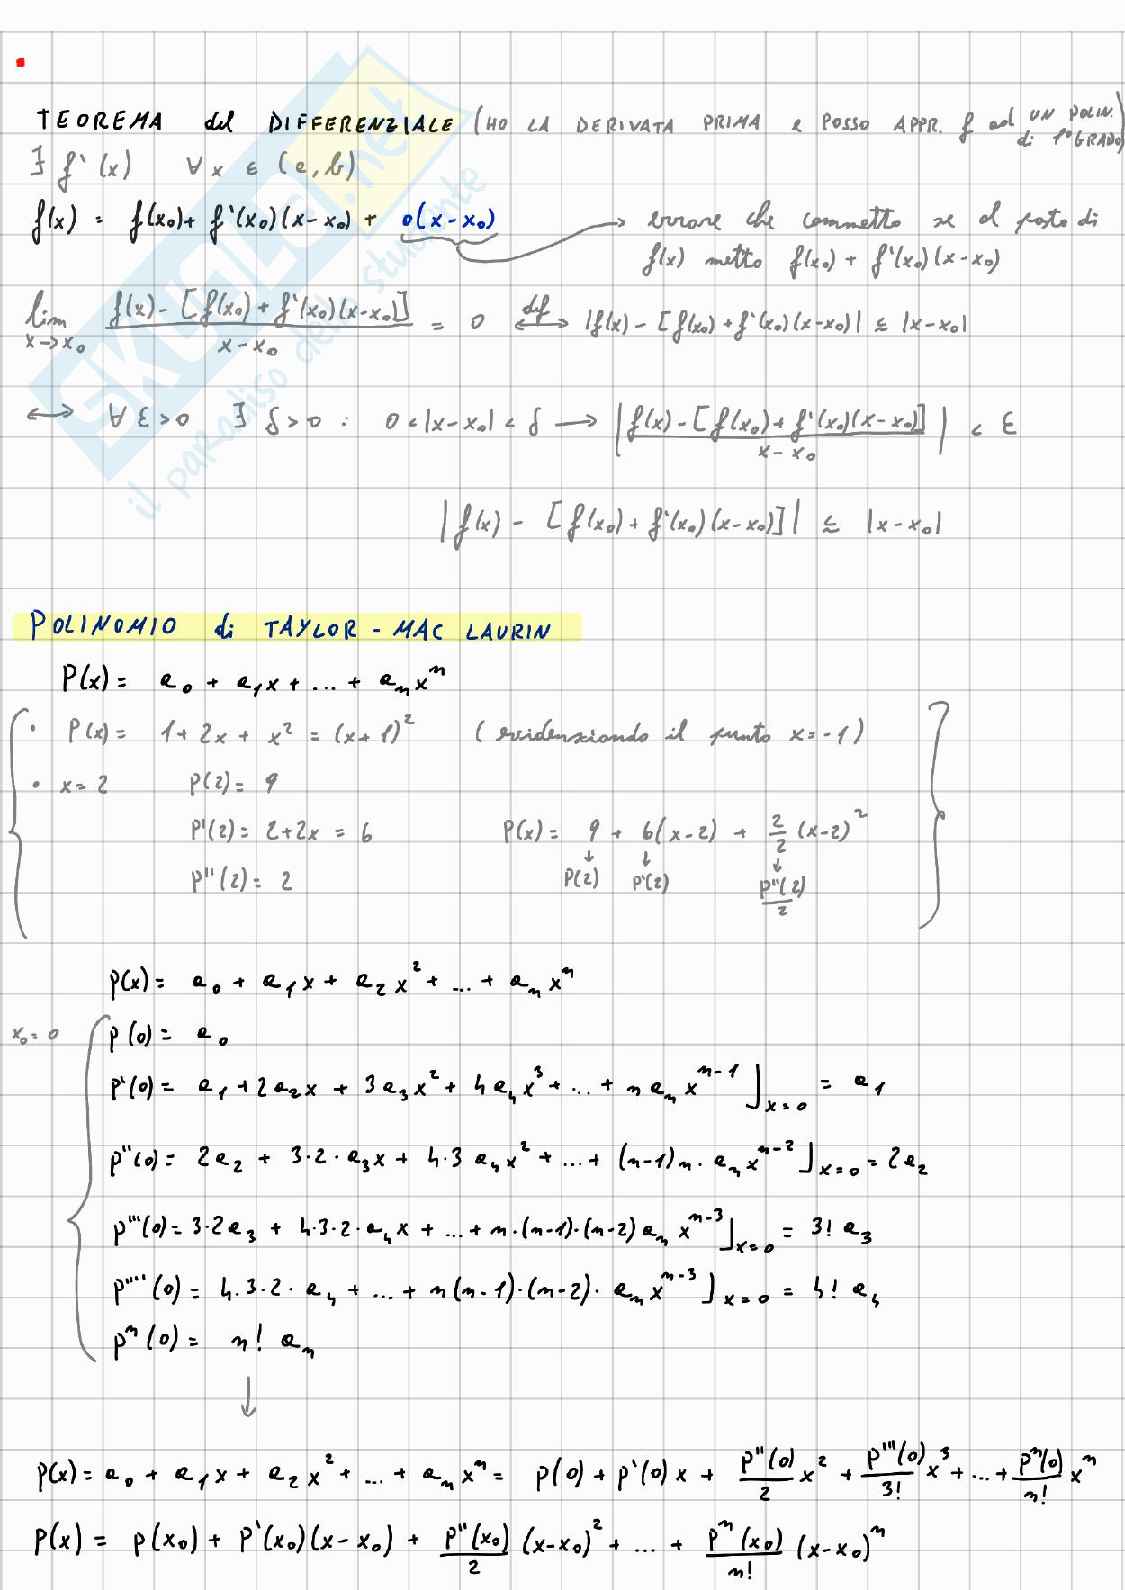 TEOREMA del DIFFERENZIALE (HO LA DERIVATA PRIMA e POSSO APPR. f ad UN POLIN. di 1° GRADO)
∃ f'(x) ∀x ∈ (a,b)
f(x) = f(x₀) + f'(x₀)(x-x₀) + o(x-x₀) → errore che commetto se al posto di
f(x) metto f(x₀) + f'(x₀)(x-x₀)
lim x→x₀ f(x) - [f(x₀) + f'(x₀)(x-x₀)] / x-x₀ = 0 ⟷ def |f(x) - [f(x₀) + f'(x₀)(x-x₀)| ≤ |x-x₀|
⟷ ∀ε>0 ∃ δ>0 : 0<|x-x₀|<δ → |f(x) - [f(x₀) + f'(x₀)(x-x₀)] / x-x₀| < ε
|f(x) - [f(x₀) + f'(x₀)(x-x₀)]| ≲ |x-x₀|
SKUOLA.net
il paradiso dello studente
POLINOMIO di TAYLOR - MAC LAURIN
P(x) = a₀ + a₁x + ... + aₙxⁿ
• P(x) = 1 + 2x + x² = (x+1)² (evidenziando il punto x=-1)
• x = 2 P(2) = 9
P'(2) = 2+2x = 6 P(x) = 9 + 6(x-2) + 2/2 (x-2)²
P''(2) = 2 P(2) P'(2) P''(2)/2
p(x) = a₀ + a₁x + a₂x² + ... + aₙxⁿ
x₀ = 0 p(0) = a₀
p'(0) = a₁ + 2a₂x + 3a₃x² + 4a₄x³ + ... + n aₙxⁿ⁻¹ ]ₓ₌₀ = a₁
p''(0) = 2a₂ + 3·2·a₃x + 4·3 a₄x² + ... + (n-1)n· aₙxⁿ⁻² ]ₓ₌₀ = 2a₂
p'''(0) = 3·2a₃ + 4·3·2·a₄x + ... + n·(n-1)·(n-2) aₙ xⁿ⁻³ ]ₓ₌₀ = 3! a₃
p''''(0) = 4·3·2· a₄ + ... + n(n-1)·(n-2)· aₙxⁿ⁻³ ]ₓ₌₀ = 4! a₄
pⁿ(0) = n! aₙ
↓
p(x) = a₀ + a₁x + a₂x² + ... + aₙxⁿ = p(0) + p'(0)x + p''(0)/2 x² + p'''(0)/3! x³ + ... + pⁿ(0)/n! xⁿ
p(x) = p(x₀) + p'(x₀)(x-x₀) + p''(x₀)/2 (x-x₀)² + ... + pⁿ(x₀)/n! (x-x₀)ⁿ